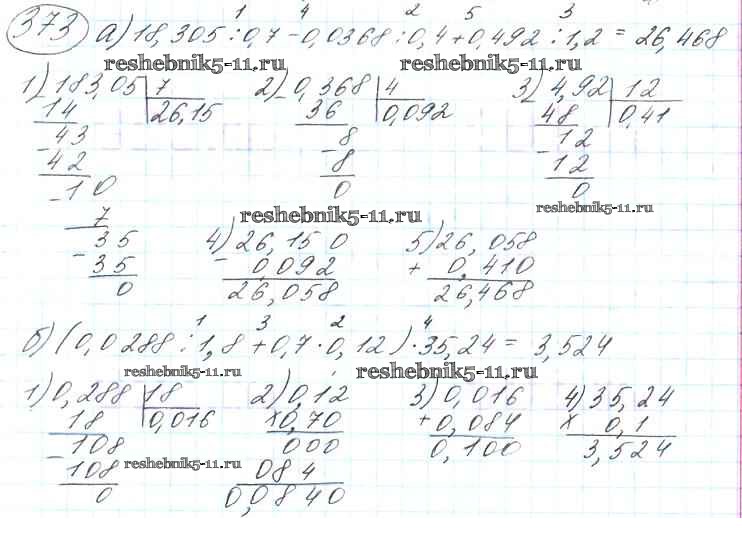 373 а) 18,305 : 0,7 - 0,0368 : 0,4 + 0,492 : 1,2 = 26,468
reshebnik5-11.ru reshebnik5-11.ru
1) 183,05 | 7 2) 0,368 | 4 3) 4,92 | 12
14 26,15 36 0,092 48 0,41
43 8 12
42 8 12
10 0 0
7 reshebnik5-11.ru reshebnik5-11.ru
35 4) 26,150 5) 26,058
35 - 0,092 + 0,410
0 26,058 26,468
б) (0,0288 : 1,8 + 0,7 · 0,12) · 35,24 = 3,524
reshebnik5-11.ru reshebnik5-11.ru
1) 0,288 | 18 2) 0,12 3) 0,016 4) 35,24
18 0,016 x 0,70 + 0,084 x 0,1
108 000 0,100 3,524
108 reshebnik5-11.ru 084
0 0,0840